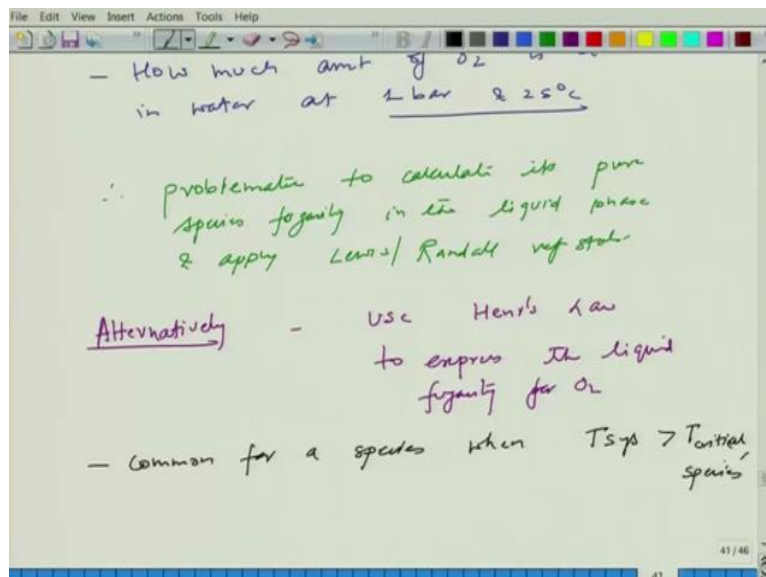 File Edit View Insert Actions Tools Help
B I
- How much amt of O2 is
in water at 1 bar & 25°C
∴ problematic to calculate its pure
species fugacity in the liquid phase
& apply Lewis/Randall ref state
Alternatively - Use Henry's Law
to express the liquid
fugacity for O2
- Common for a species when Tsys > Tcritical,
species
41/46
41